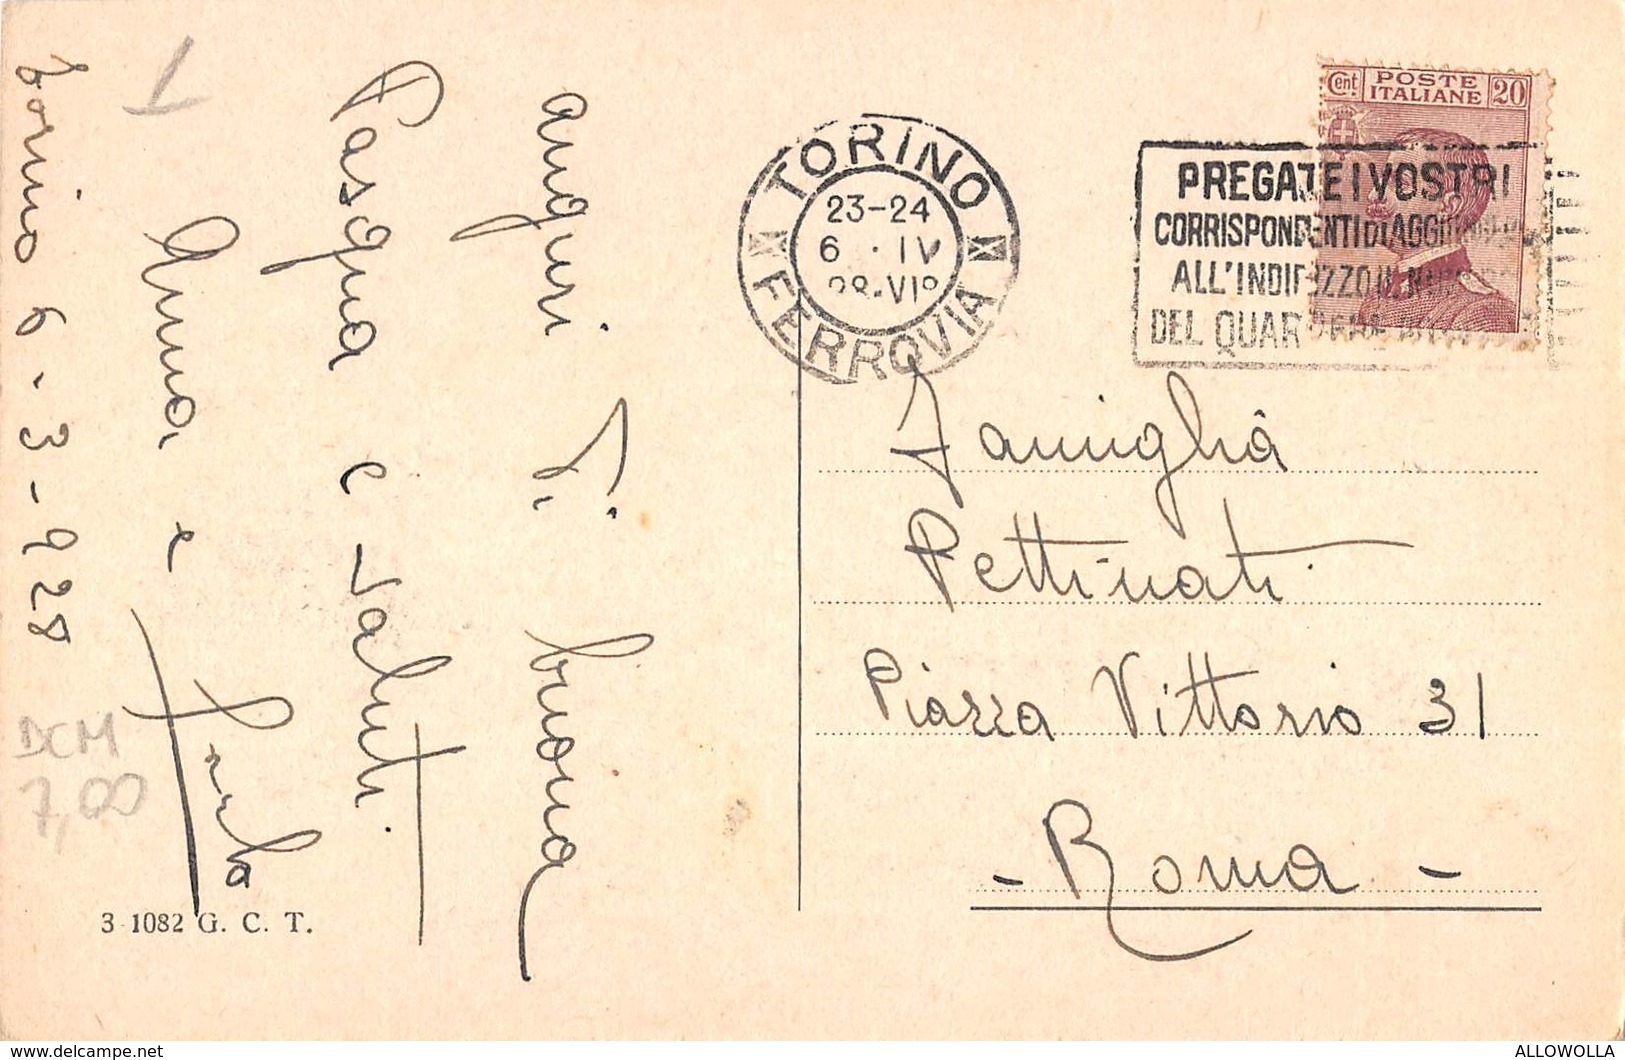 Torino 6-3-928
auguri di buona
Pasqua e saluti
Anna e
DCM
7,00
3-1082 G. C. T.
TORINO
23-24
6 · IV
28·VIº
FERROVIA
Cent POSTE ITALIANE 20
PREGATE I VOSTRI
CORRISPONDENTI DI AGGIUNGERE
ALL'INDIRIZZO IL NUMERO
DEL QUARTIERE
Famiglia
Pettinati
Piazza Vittorio 31
- Roma -
delcampe.net
ALLOWOLLA